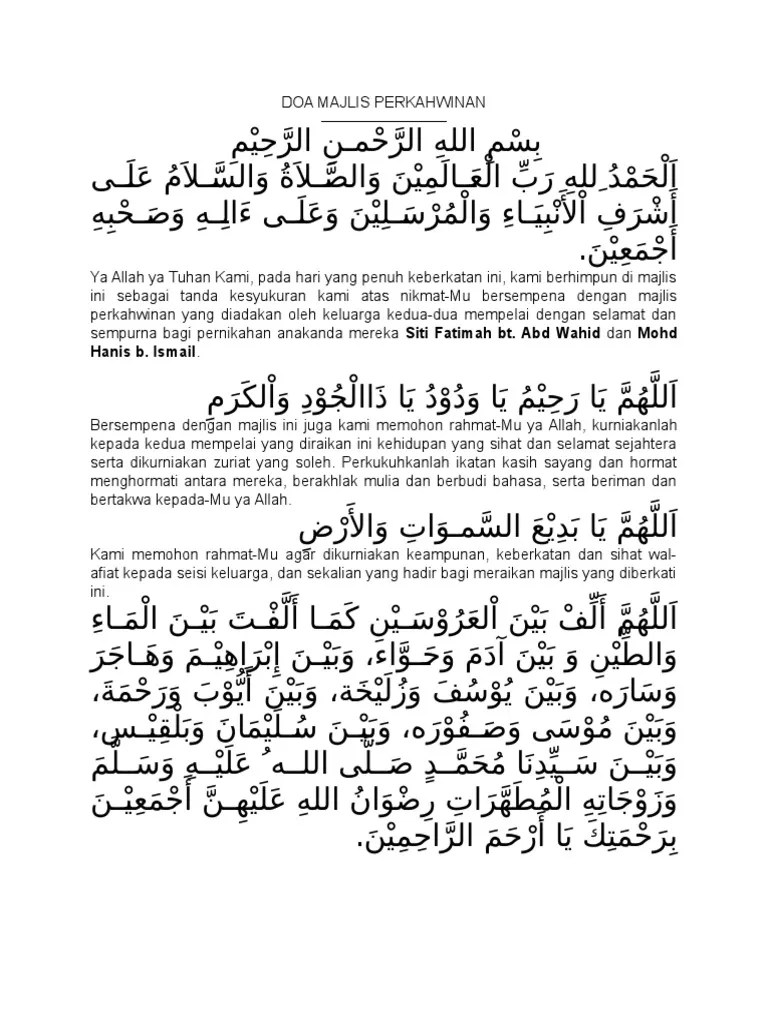 DOA MAJLIS PERKAHWINAN
بِسْمِ اللهِ الرَّحْمـنِ الرَّحِيْمِ
اَلْحَمْدُ ِللهِ رَبِّ الْعَـالَمِيْنَ وَالصَّـلاَةُ وَالسَّـلاَمُ عَلَـى
أَشْرَفِ اْلأَنْبِيَـاءِ وَالْمُرْسَـلِيْنَ وَعَلَـى ءَالِـهِ وَصَـحْبِهِ
أَجْمَعِيْنَ.
Ya Allah ya Tuhan Kami, pada hari yang penuh keberkatan ini, kami berhimpun di majlis
ini sebagai tanda kesyukuran kami atas nikmat-Mu bersempena dengan majlis
perkahwinan yang diadakan oleh keluarga kedua-dua mempelai dengan selamat dan
sempurna bagi pernikahan anakanda mereka Siti Fatimah bt. Abd Wahid dan Mohd
Hanis b. Ismail.
اَللَّهُمَّ يَا رَحِيْمُ يَا وَدُوْدُ يَا ذَاالْجُوْدِ وَاْلكَرَمِ
Bersempena dengan majlis ini juga kami memohon rahmat-Mu ya Allah, kurniakanlah
kepada kedua mempelai yang diraikan ini kehidupan yang sihat dan selamat sejahtera
serta dikurniakan zuriat yang soleh. Perkukuhkanlah ikatan kasih sayang dan hormat
menghormati antara mereka, berakhlak mulia dan berbudi bahasa, serta beriman dan
bertakwa kepada-Mu ya Allah.
اَللَّهُمَّ يَا بَدِيْعَ السَّمـوَاتِ وَالأَرْضِ
Kami memohon rahmat-Mu agar dikurniakan keampunan, keberkatan dan sihat wal-
afiat kepada seisi keluarga, dan sekalian yang hadir bagi meraikan majlis yang diberkati
ini.
اَللَّهُمَّ أَلِّفْ بَيْنَ اْلعَرُوْسَـيْنِ كَمَـا أَلَّفْـتَ بَيْـنَ الْمَـاءِ
وَالطِّيْنِ وَ بَيْنَ آدَمَ وَحَـوَّاء، وَبَيْـنَ إِبْرَاهِيْـمَ وَهَـاجَرَ
وَسَارَه، وَبَيْنَ يُوْسُفَ وَزُلَيْخَة، وَبَيْنَ أَيُّوْبَ وَرَحْمَةَ،
وَبَيْنَ مُوْسَى وَصَـفُوْرَه، وَبَيْـنَ سُـلَيْمَانَ وَبَلْقِيْـس،
وَبَيْـنَ سَـيِّدِنَا مُحَمَّـدٍ صَـلَّى اللـه ُ عَلَيْـهِ وَسَـلَّمَ
وَزَوْجَاتِهِ الْمُطَهَّرَاتِ رِضْوَانُ اللهِ عَلَيْهِـنَّ أَجْمَعِيْـنَ
بِرَحْمَتِكَ يَا أَرْحَمَ الرَّاحِمِيْنَ.